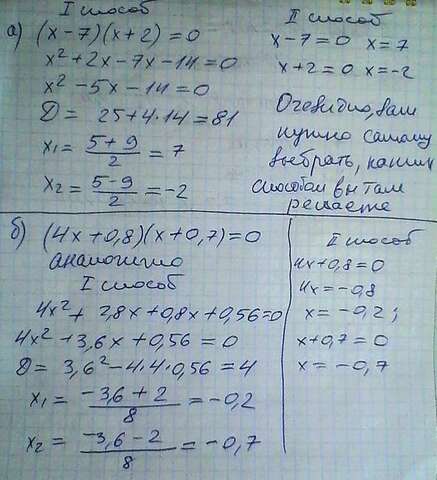 I способ
а) (x-7)(x+2)=0
x²+2x-7x-14=0
x²-5x-14=0
D= 25+4·14=81
x₁= (5+9)/2 =7
x₂= (5-9)/2 =-2
II способ
x-7=0 x=7
x+2=0 x=-2
Очевидно, вам
нужно самому
выбрать, каким
способом вы там
решаете
б) (4x+0,8)(x+0,7)=0
аналогично
I способ
4x²+ 2,8x+0,8x+0,56=0
4x²+3,6x+0,56=0
D= 3,6²-4·4·0,56=4
x₁= (-3,6+2)/8 =-0,2
x₂= (-3,6-2)/8 =-0,7
II способ
4x+0,8=0
4x=-0,8
x=-0,2;
x+0,7=0
x=-0,7